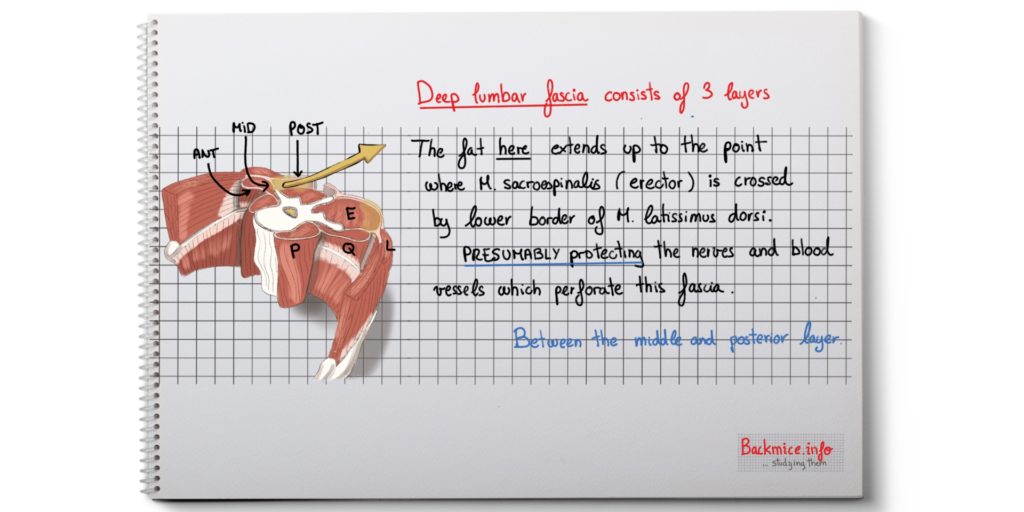 Deep lumbar fascia consists of 3 layers
MiD
POST
ANT
The fat here extends up to the point
where M. sacroespinalis (erector) is crossed
by lower border of M. latissimus dorsi.
PRESUMABLY protecting the nerves and blood
vessels which perforate this fascia.
E
P
Q
L
Between the middle and posterior layer.
Backmice.info
... studying them